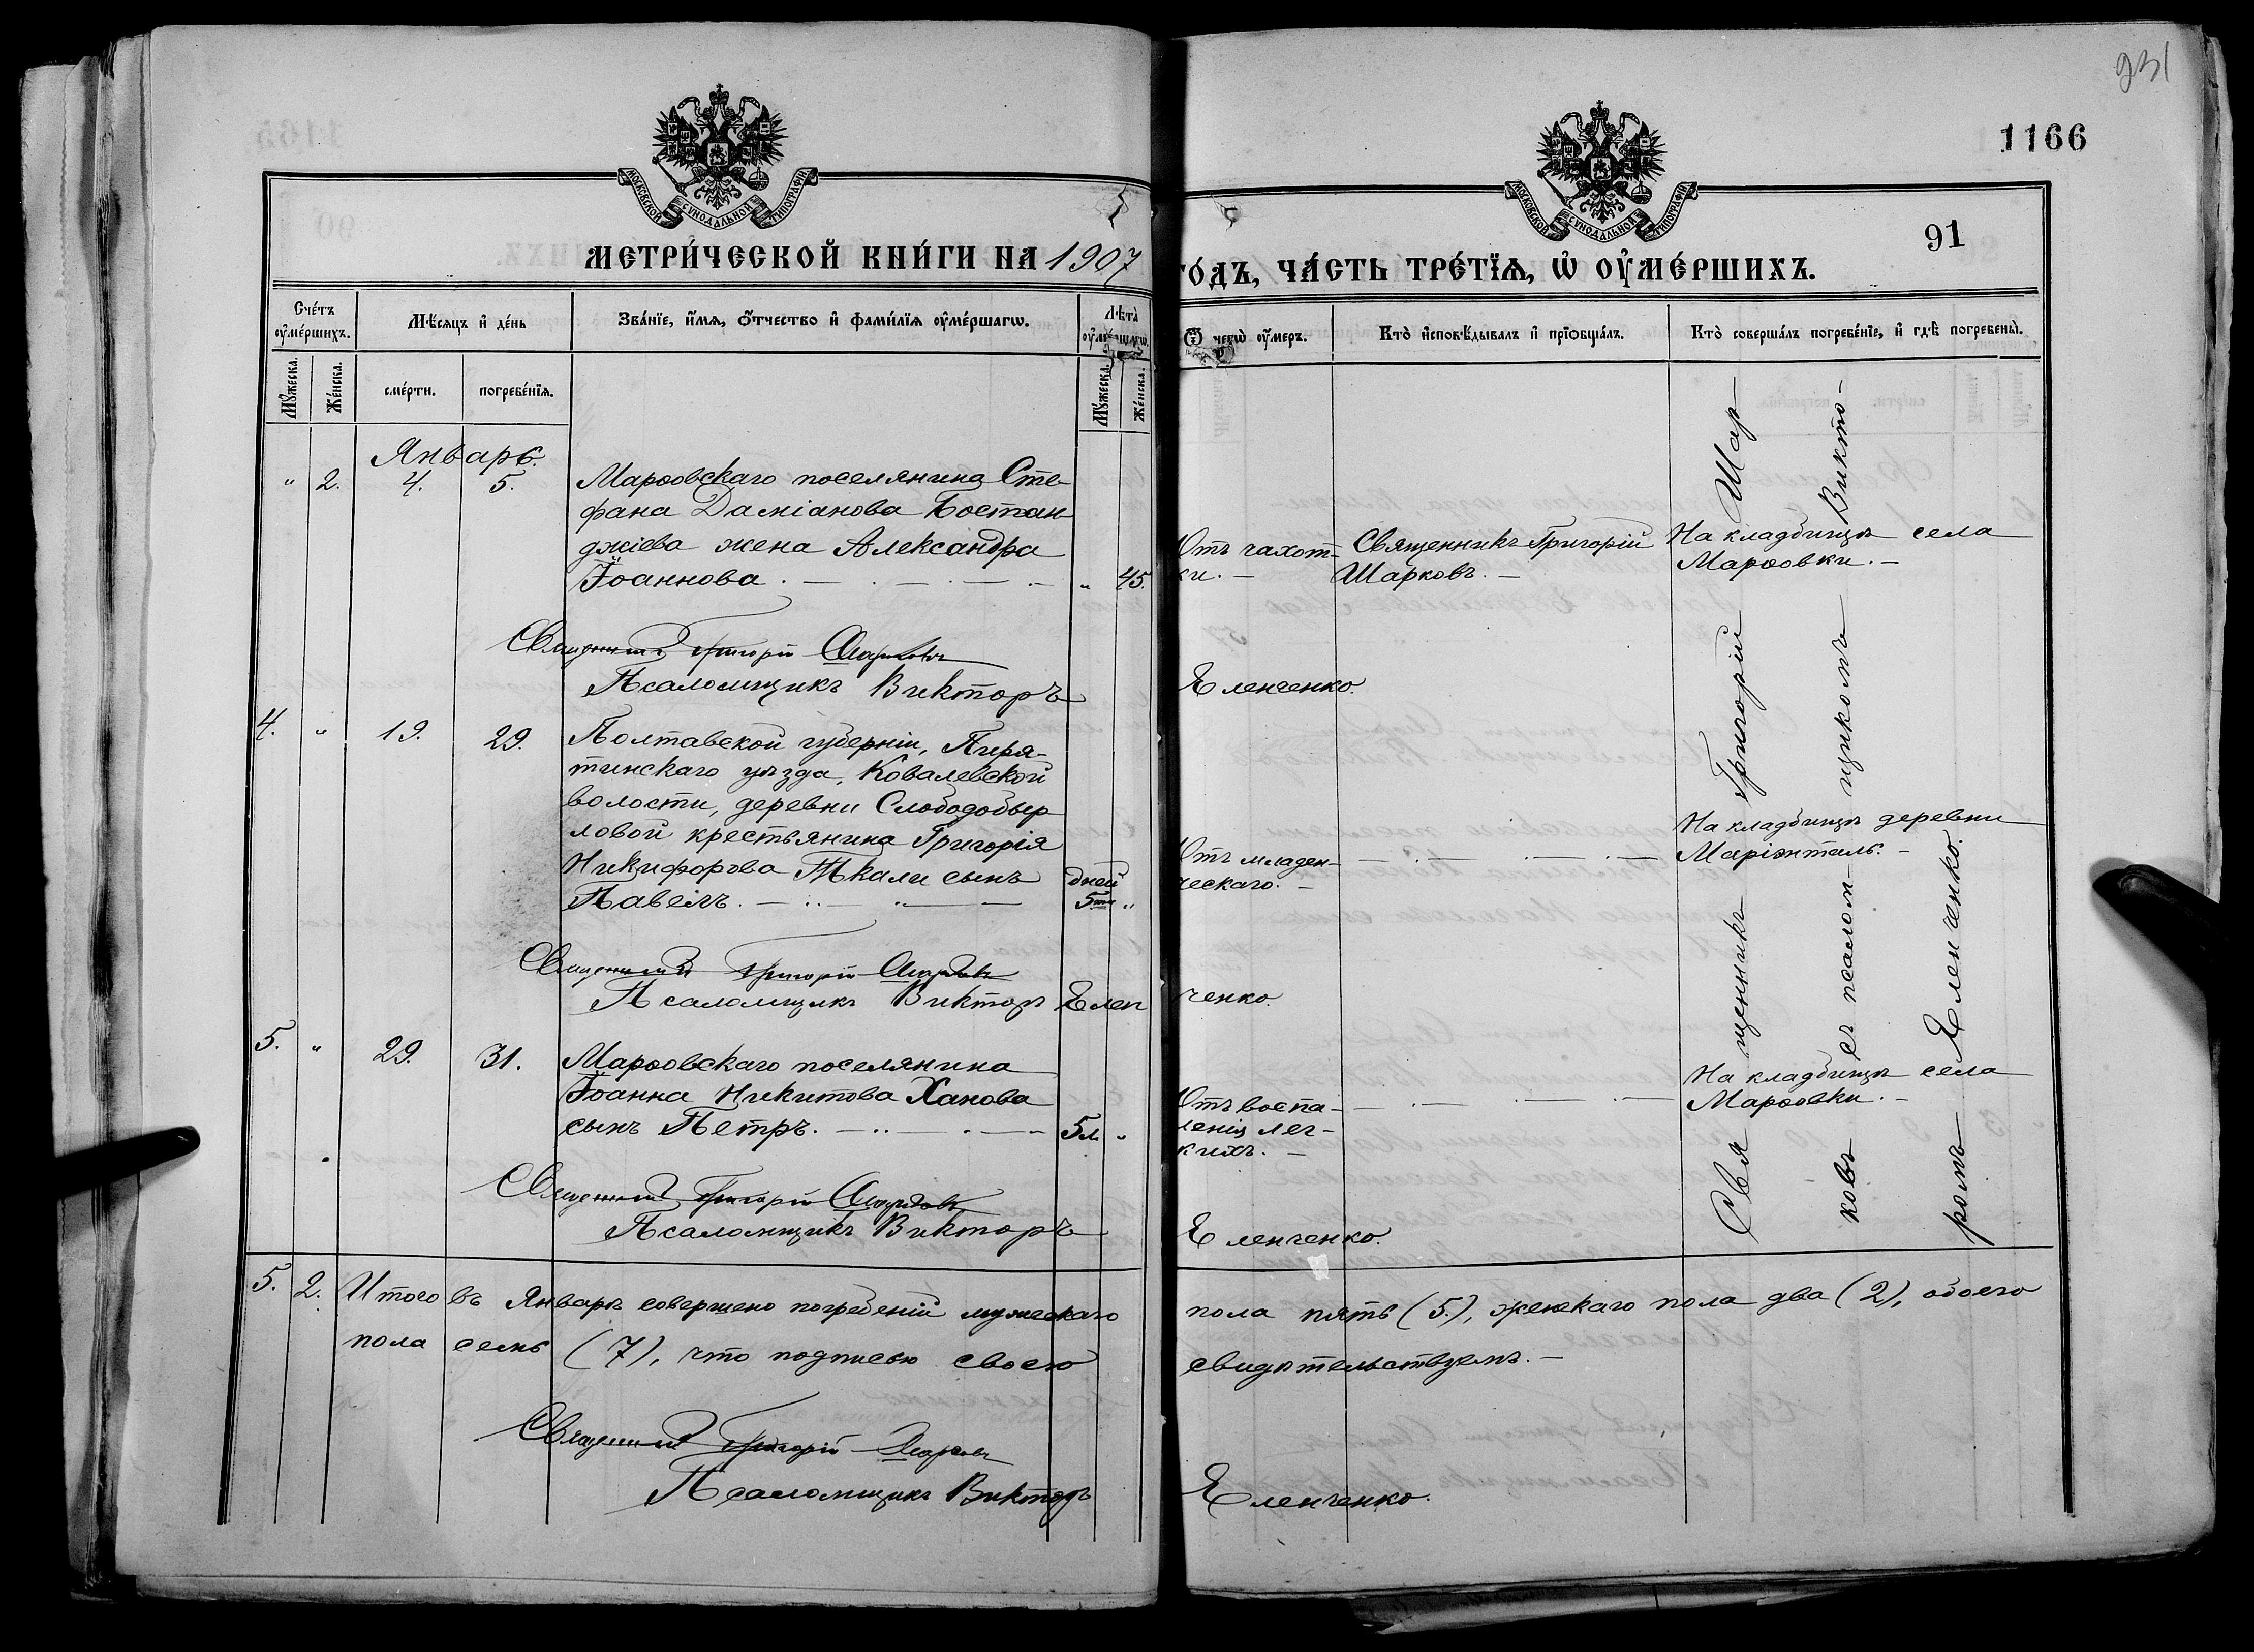 931
1166
91
МОСКОВСКОЙ СѴНОДАЛЬНОЙ ТИПОГРАФІИ
МОСКОВСКОЙ СѴНОДАЛЬНОЙ ТИПОГРАФІИ
МЕТРИ́ЧЕСКОЙ КНИ́ГИ НА 1907
ГО́ДЪ, ЧА́СТЬ ТРЕ́ТІѦ, Ѡ҆ ОУ҆МЕ́РШИХЪ.
Сче́тъ оу҆ме́ршихъ.
Мѣ́сяцъ и҆ де́нь
Зва́нїе, и҆́мѧ, ѻ҆́тчество и҆ фами́лїѧ оу҆ме́ршагѡ.
Лѣта̀ оу҆ме́ршагѡ.
Ѿ чегѡ̀ оу҆́меръ.
Кто̀ и҆сповѣ́дывалъ и҆ прїѡбща́лъ.
Кто̀ соверша́лъ погребе́нїе, и҆ гдѣ̀ погребены̀.
Мꙋ́жеска.
Же́нска.
сме́рти.
погребе́нїѧ.
Мꙋ́жеска.
Же́нска.
Январь.
" 2. 4. 5. Марѳовскаго поселянина Сте-
фана Даміанова Бостан-
джіева жена Александра
Іоаннова. " 45.
Отъ чахот-
ки.
Священникъ Григорій
Шарковъ.
На кладбищѣ села
Марѳовки.
Священникъ Григорій Шарковъ
Псаломщикъ Викторъ Еленченко.
4. " 19. 29. Полтавской губерніи, Пиря-
тинскаго уѣзда, Ковалевской
волости, деревни
крестьянина Григорія
Никифорова Ткали сынъ
Павелъ. дней 5ти "
Отъ младен-
ческаго.
На кладбищѣ деревни
Маріэнталь.
Священникъ Григорій Шарковъ
Псаломщикъ Викторъ Еленченко.
5. " 29. 31. Марѳовскаго поселянина
Іоанна Никитова Ханова
сынъ Петръ. 5 л. "
Отъ воспа-
ленія лег-
кихъ.
На кладбищѣ села
Марѳовки.
Священникъ Григорій Шарковъ
Псаломщикъ Викторъ Еленченко.
Священникъ Григорій Шар-
ковъ съ псаломщикомъ Викто-
ромъ Еленченко.
5. 2. Итого въ Январѣ совершено погребеній мужескаго пола пять (5), женскаго пола два (2), обоего
пола семь (7), что подписью своею свидѣтельствуемъ.
Священникъ Григорій Шарковъ
Псаломщикъ Викторъ Еленченко.